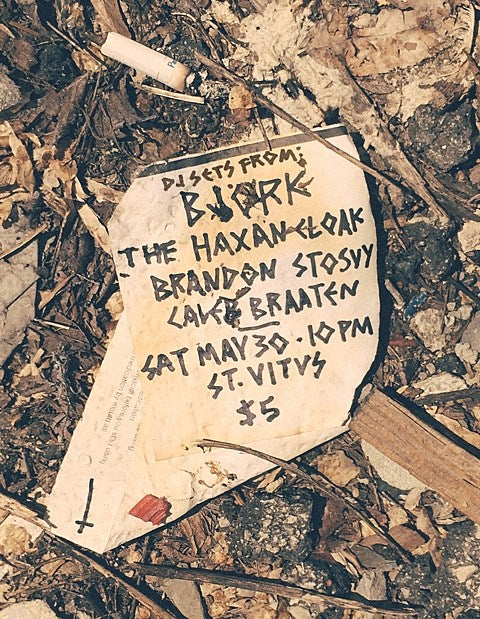 DJ SETS FROM:
BJORK
THE HAXAN CLOAK
BRANDON STOSUY
CALEB BRAATEN
SAT MAY 30 · 10 PM
ST. VITUS
$5